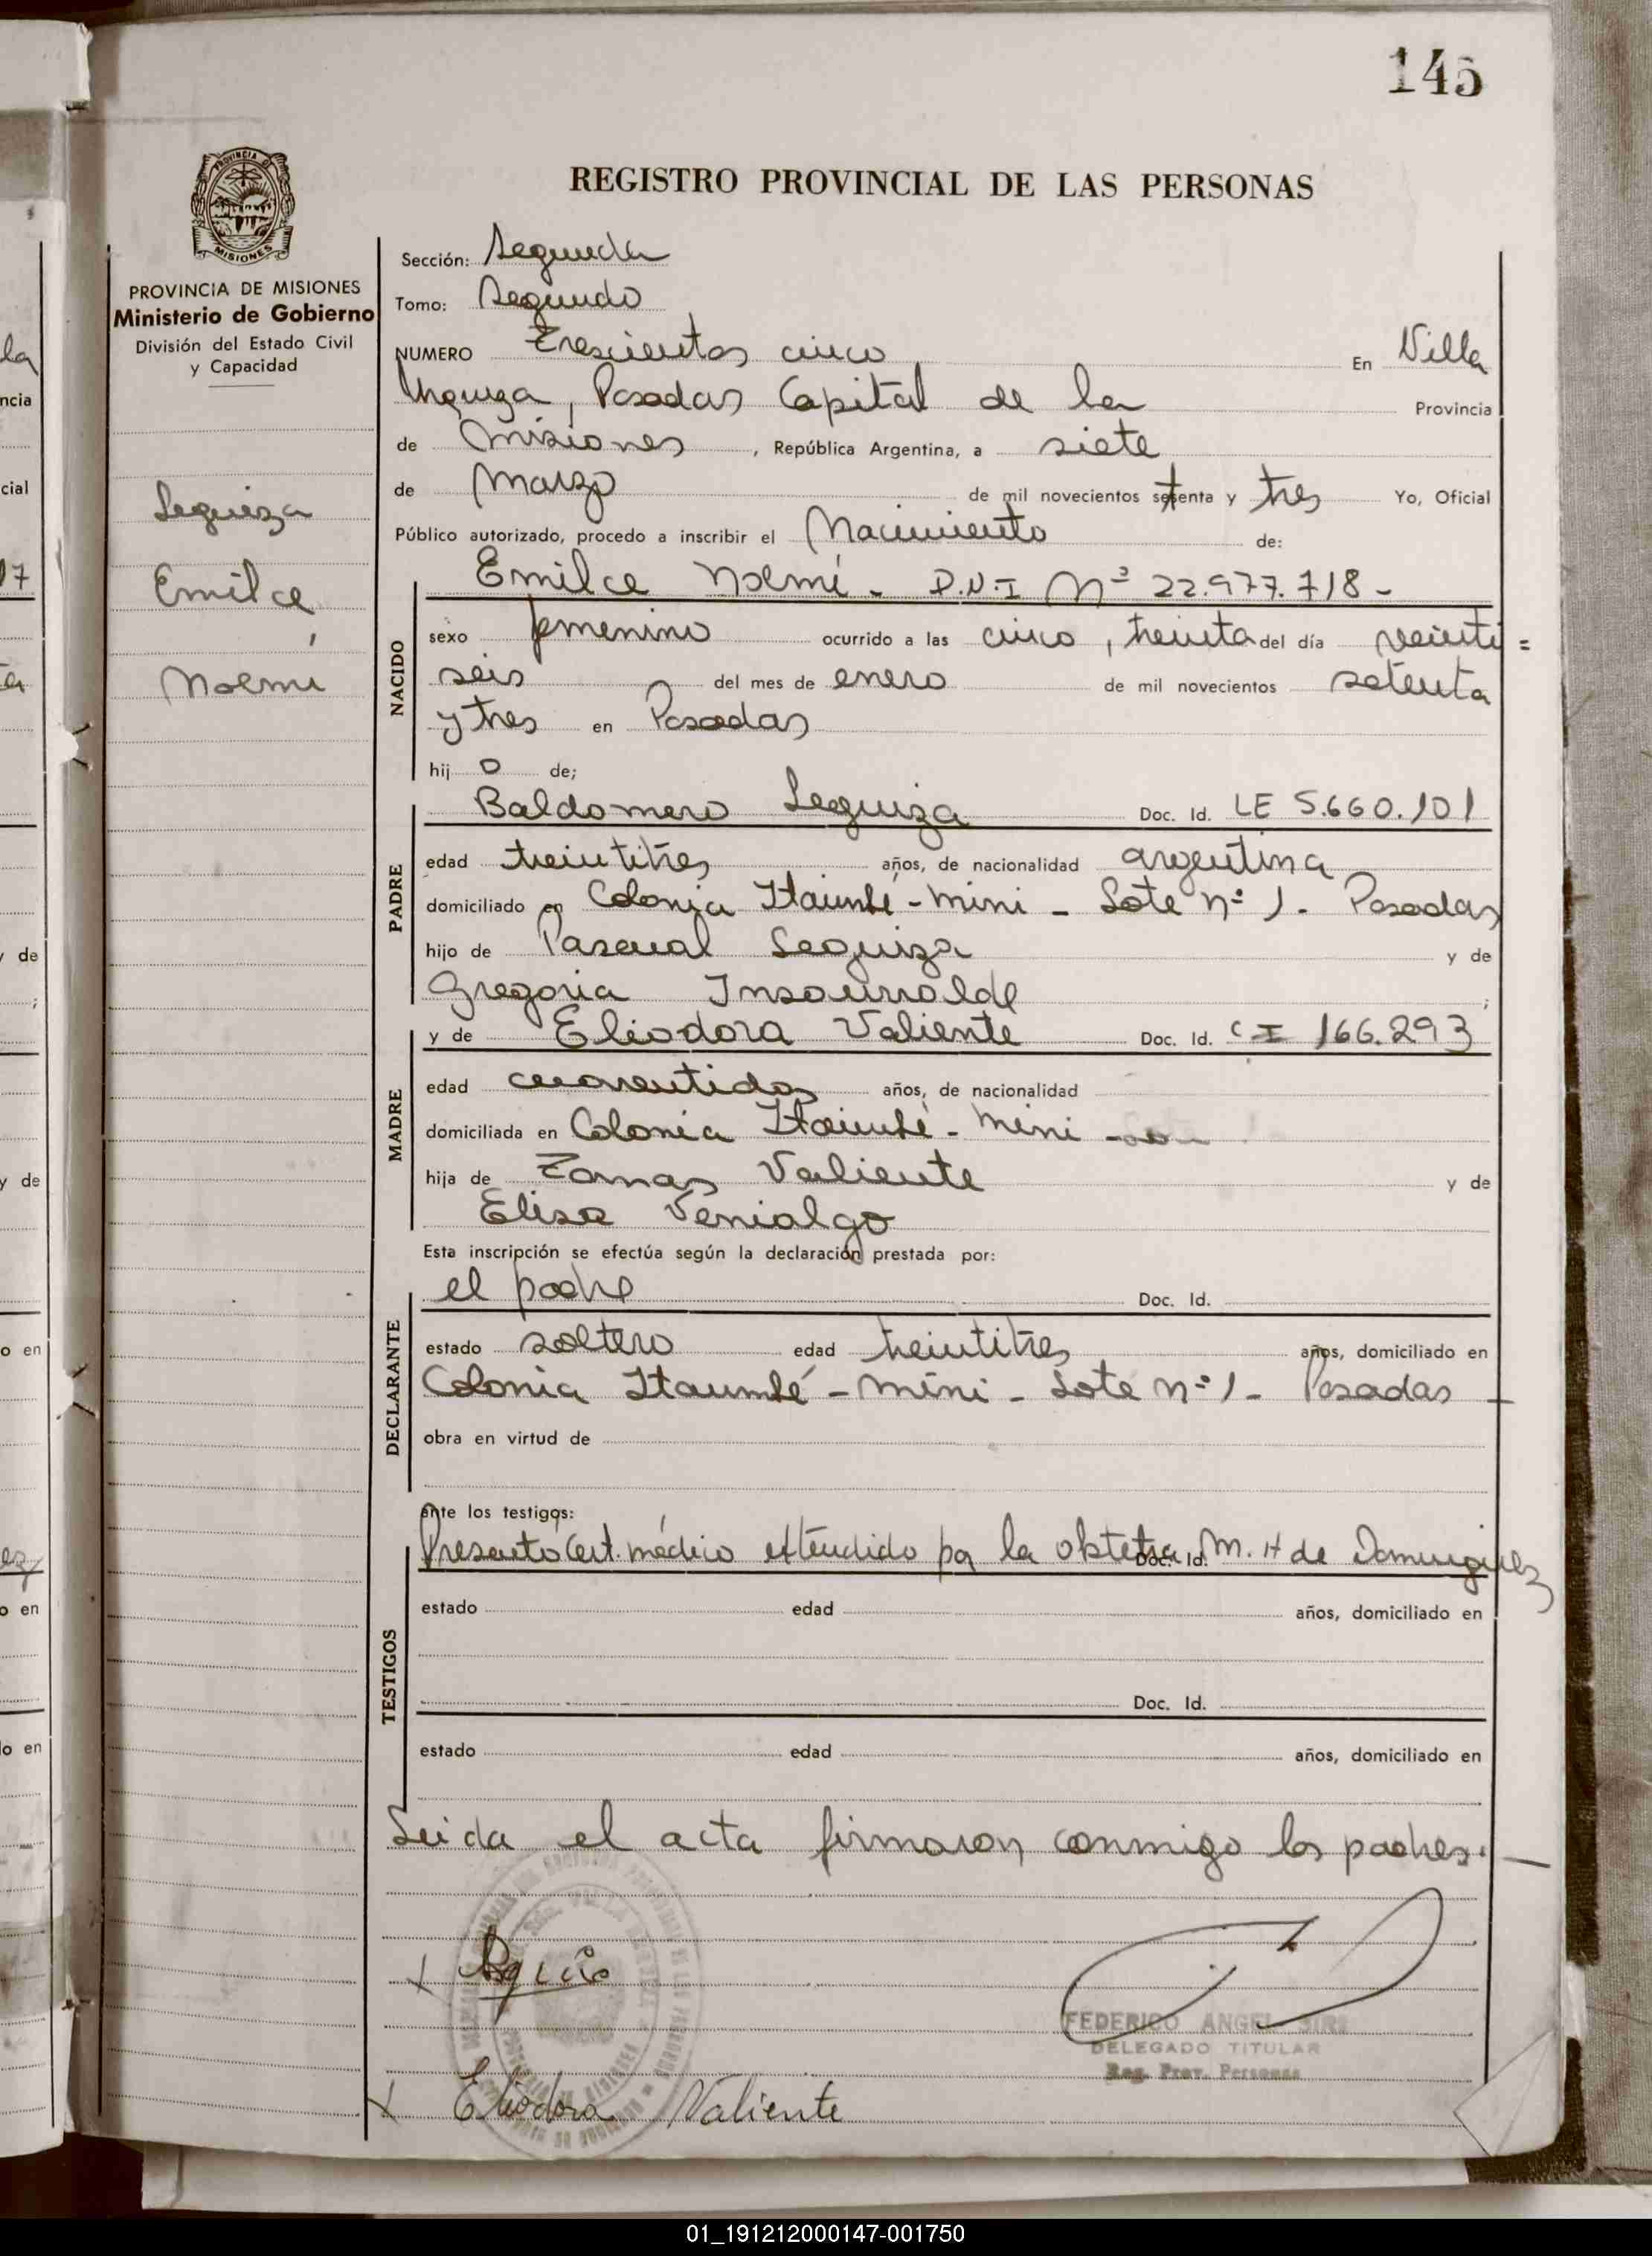 145
REGISTRO PROVINCIAL DE LAS PERSONAS
PROVINCIA DE MISIONES
Ministerio de Gobierno
División del Estado Civil
y Capacidad
Leguiza
Emilce
Noemí
Sección: Segunda
Tomo: Segundo
NUMERO Trescientos cinco En Villa
Urquiza, Posadas Capital de la Provincia
de Misiones, República Argentina, a siete
de Marzo de mil novecientos setenta y tres Yo, Oficial
Público autorizado, procedo a inscribir el Nacimiento de:
Emilce Noemí. D.N.I Nº 22.977.718-
NACIDO
sexo femenino ocurrido a las cinco, treinta del día veinti=
seis del mes de enero de mil novecientos setenta
y tres en Posadas
hij o de;
Baldomero Leguiza Doc. Id. LE 5.660.101
PADRE
edad treintitres años, de nacionalidad argentina
domiciliado en Colonia Itaimbé-mini - Lote nº 1. Posadas
hijo de Pascual Leguiza y de
Gregoria Insaurralde ;
y de Eliodora Valiente Doc. Id. CI 166.293
MADRE
edad cuarentidos años, de nacionalidad
domiciliada en Colonia Itaimbé-mini
hija de Tomas Valiente y de
Elisa Venialgo
Esta inscripción se efectúa según la declaración prestada por:
el padre Doc. Id.
DECLARANTE
estado soltero edad treintitres años, domiciliado en
Colonia Itaumbé-mini - Lote nº 1- Posadas -
obra en virtud de
ante los testigos:
Presentó Cert. médico extendido por la obstetra M. H de Dominguez Doc. Id.
TESTIGOS
estado edad años, domiciliado en
Doc. Id.
estado edad años, domiciliado en
Leida el acta firmaron conmigo los padres. —
FEDERICO ANGEL
DELEGADO TITULAR
Reg. Prov. Personas
Eliodora Valiente
01_191212000147-001750